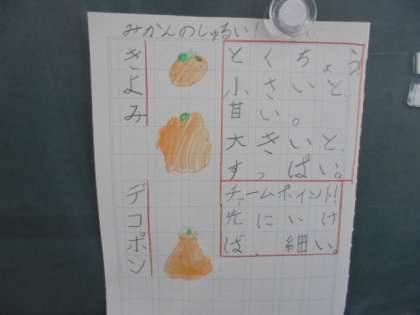 みかんのしゅるい！
きよみ
とくちょう
小さいと、
甘い。
大きいと、
すっぱい。
デコポン
チャームポイント！
先にいけ
ば、細い。